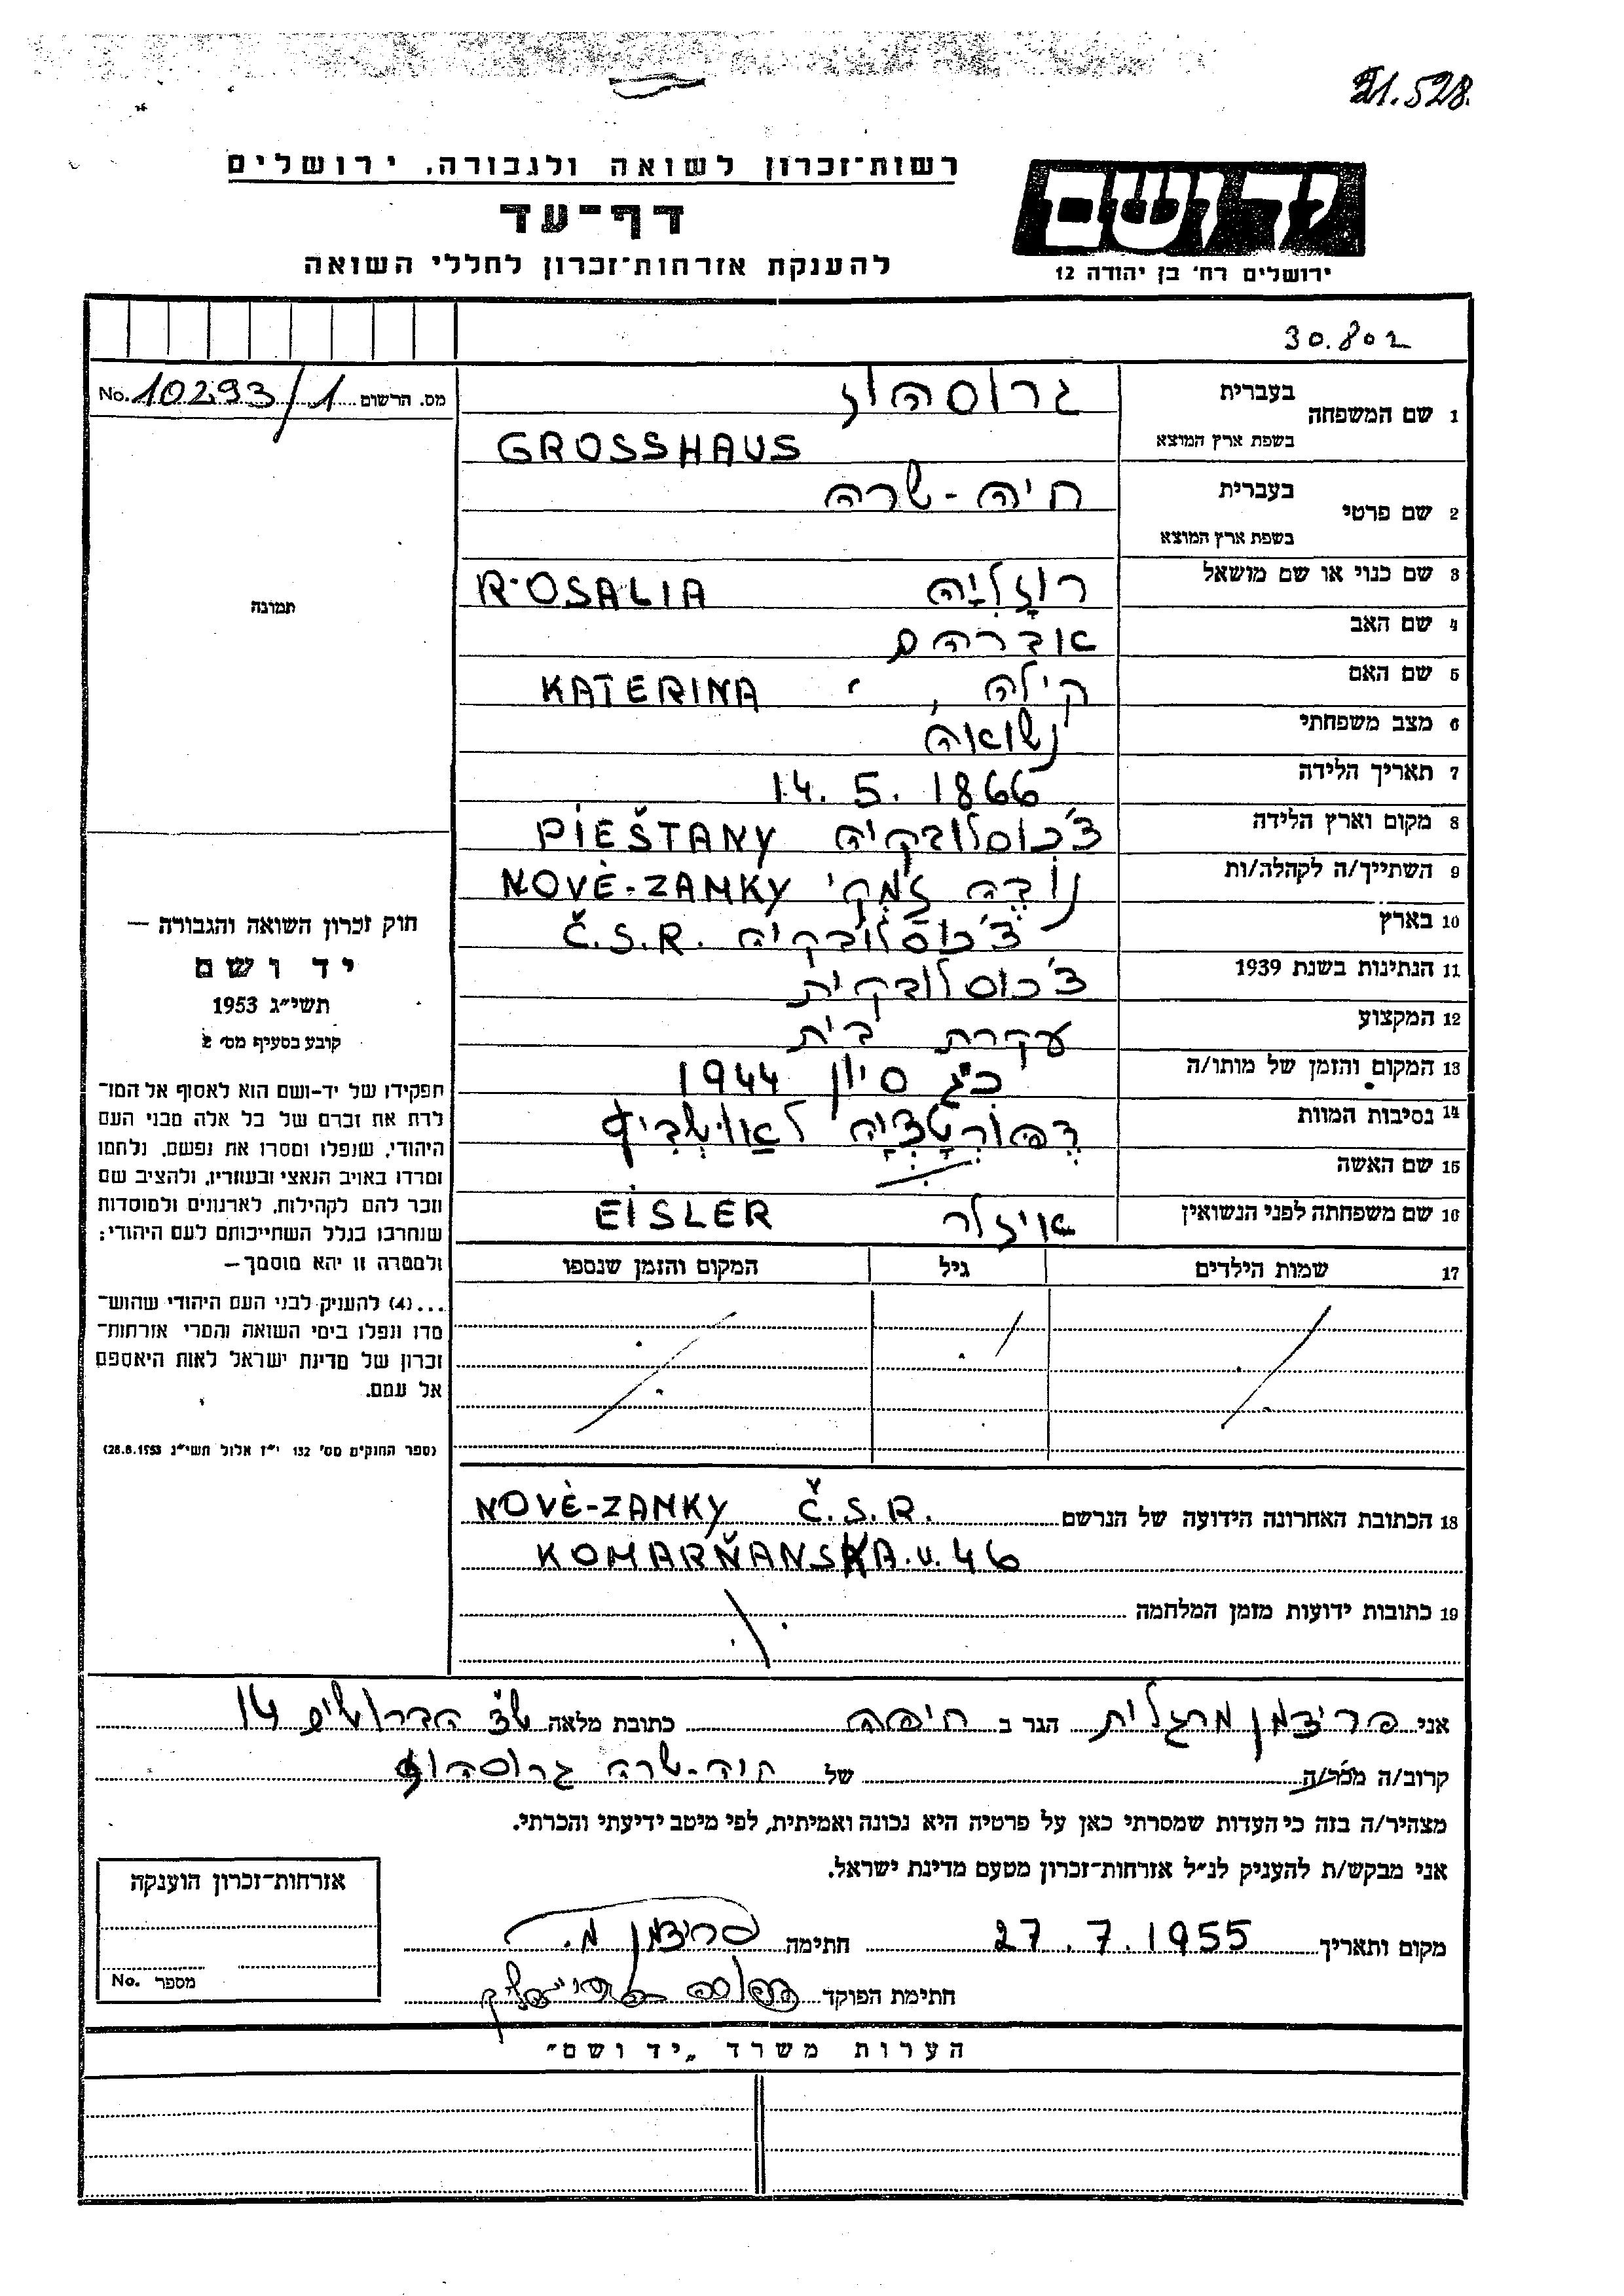 21.528.
רשות־זכרון לשואה ולגבורה, ירושלים
דף־עד
להענקת אזרחות־זכרון לחללי השואה
יד ושם
ירושלים רח׳ בן יהודה 12
30.802
מס. הרשום No. 10293/1
תמונה
חוק זכרון השואה והגבורה —
יד ושם
תשי״ג 1953
קובע בסעיף מס׳ 2
תפקידו של יד-ושם הוא לאסוף אל המו־
לדת את זכרם של כל אלה מבני העם
היהודי, שנפלו ומסרו את נפשם, נלחמו
ומרדו באויב הנאצי ובעוזריו, ולהציב שם
וזכר להם לקהילות, לארגונים ולמוסדות
שנחרבו בגלל השתייכותם לעם היהודי;
ולמטרה זו יהא מוסמך—
...(4) להעניק לבני העם היהודי שהוש־
מדו ונפלו בימי השואה והמרי אזרחות־
זכרון של מדינת ישראל לאות היאספם
אל עמם.
(ספר החוקים מס׳ 132 י״ז אלול תשי״ג 28.8.1953)
1 שם המשפחה בעברית גרוסהוז
בשפת ארץ המוצא GROSSHAUS
2 שם פרטי בעברית חיה-שרה
בשפת ארץ המוצא
3 שם כנוי או שם מושאל רוזָלִיָה ROSALIA
4 שם האב אברהם
5 שם האם קילה, KATERINA
6 מצב משפחתי נשואה
7 תאריך הלידה 14. 5. 1866
8 מקום וארץ הלידה צ׳כוסלובקיה PIEŠTANY
9 השתייך/ה לקהלה/ות נוֹבֶה זַמְקי NOVÈ-ZAMKY
10 בארץ צ׳כוסלובקיה Č.S.R.
11 הנתינות בשנת 1939 צ׳כוסלובקית
12 המקצוע עקרת בית
13 המקום והזמן של מותו/ה כ״ג סיון 1944
14 נסיבות המוות דֶפּוֹרְטָצְיָה לאַוּשְבִיץ
15 שם האשה
16 שם משפחתה לפני הנשואין איזלר EISLER
17 שמות הילדים גיל המקום והזמן שנספו
18 הכתובת האחרונה הידועה של הנרשם NOVÈ-ZAMKY Č.S.R.
KOMARŇANSKA.u.46
19 כתובות ידועות מזמן המלחמה
אני פריצמן מרגלית הגר ב חיפה כתובת מלאה הדרושים 14
קרוב/ה מכר/ה של חיה-שרה גרוסהוז
מצהיר/ה בזה כי העדות שמסרתי כאן על פרטיה היא נכונה ואמיתית, לפי מיטב ידיעתי והכרתי.
אני מבקש/ת להעניק לנ״ל אזרחות-זכרון מטעם מדינת ישראל.
מקום ותאריך 27.7.1955 חתימה פריצמן מ.
חתימת הפוקד
אזרחות־זכרון הוענקה
מספר No.
הערות משרד „יד ושם״